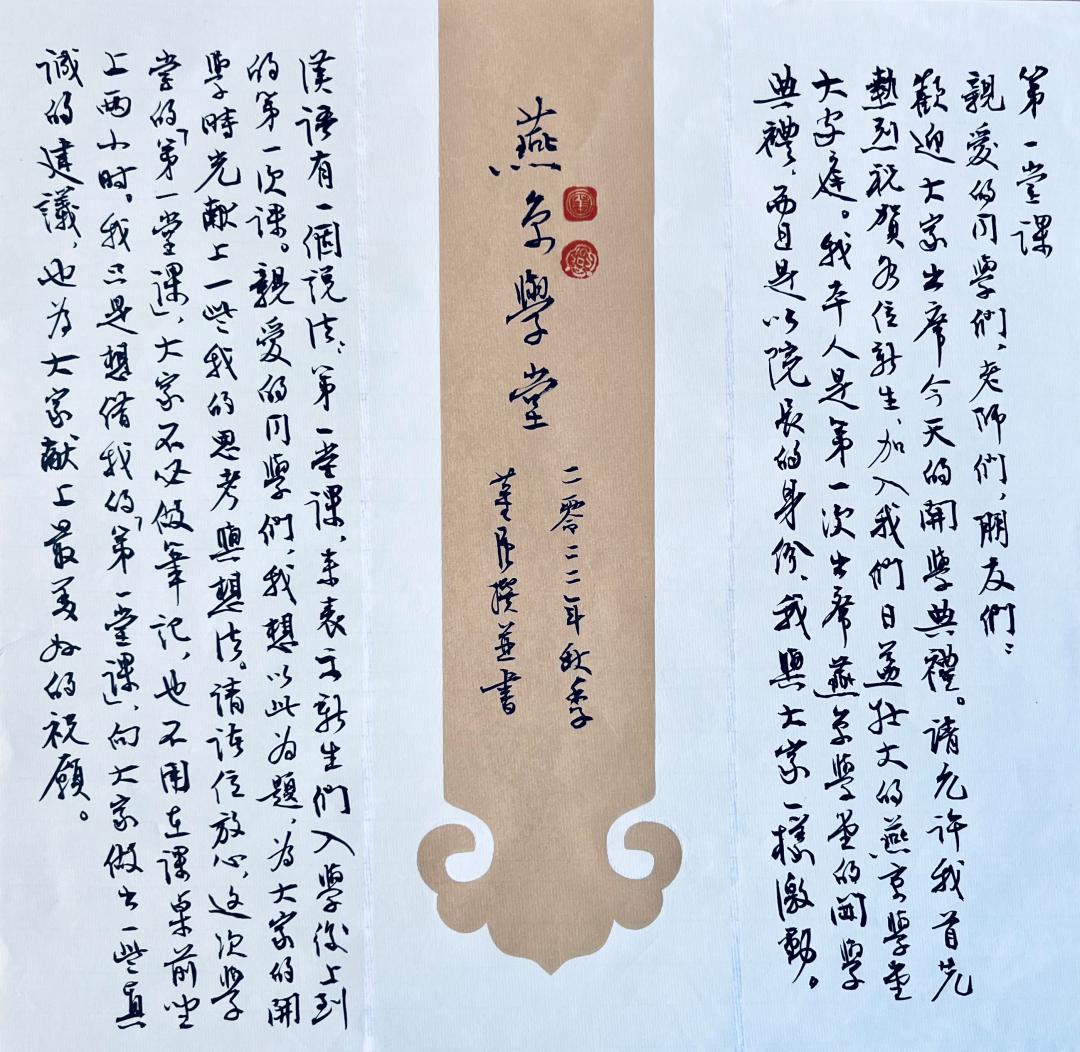 第一堂课
親愛的同學們、老师們，朋友們：
歡迎大家出席今天的開學典禮。请允许我首先
熱烈祝賀各位新生，加入我們日益壮大的燕京學堂
大家庭。我本人是第一次出席燕京學堂的開學
典禮，而且是以院長的身份，我與大家一樣激動。
燕京學堂
二零二二年秋季
董强撰並書
漢語有一個説法：第一堂課，来表示新生們入學後上到
的第一次課。親愛的同學們，我想以此为題，为大家的開
學時光献上一些我的思考與想法。請諸位放心，这次學
堂的「第一堂課」，大家不必做筆记，也不用在課桌前坐
上两小时。我只是想借我的「第一堂課」，向大家做出一些真
誠的建議，也为大家献上最美好的祝願。